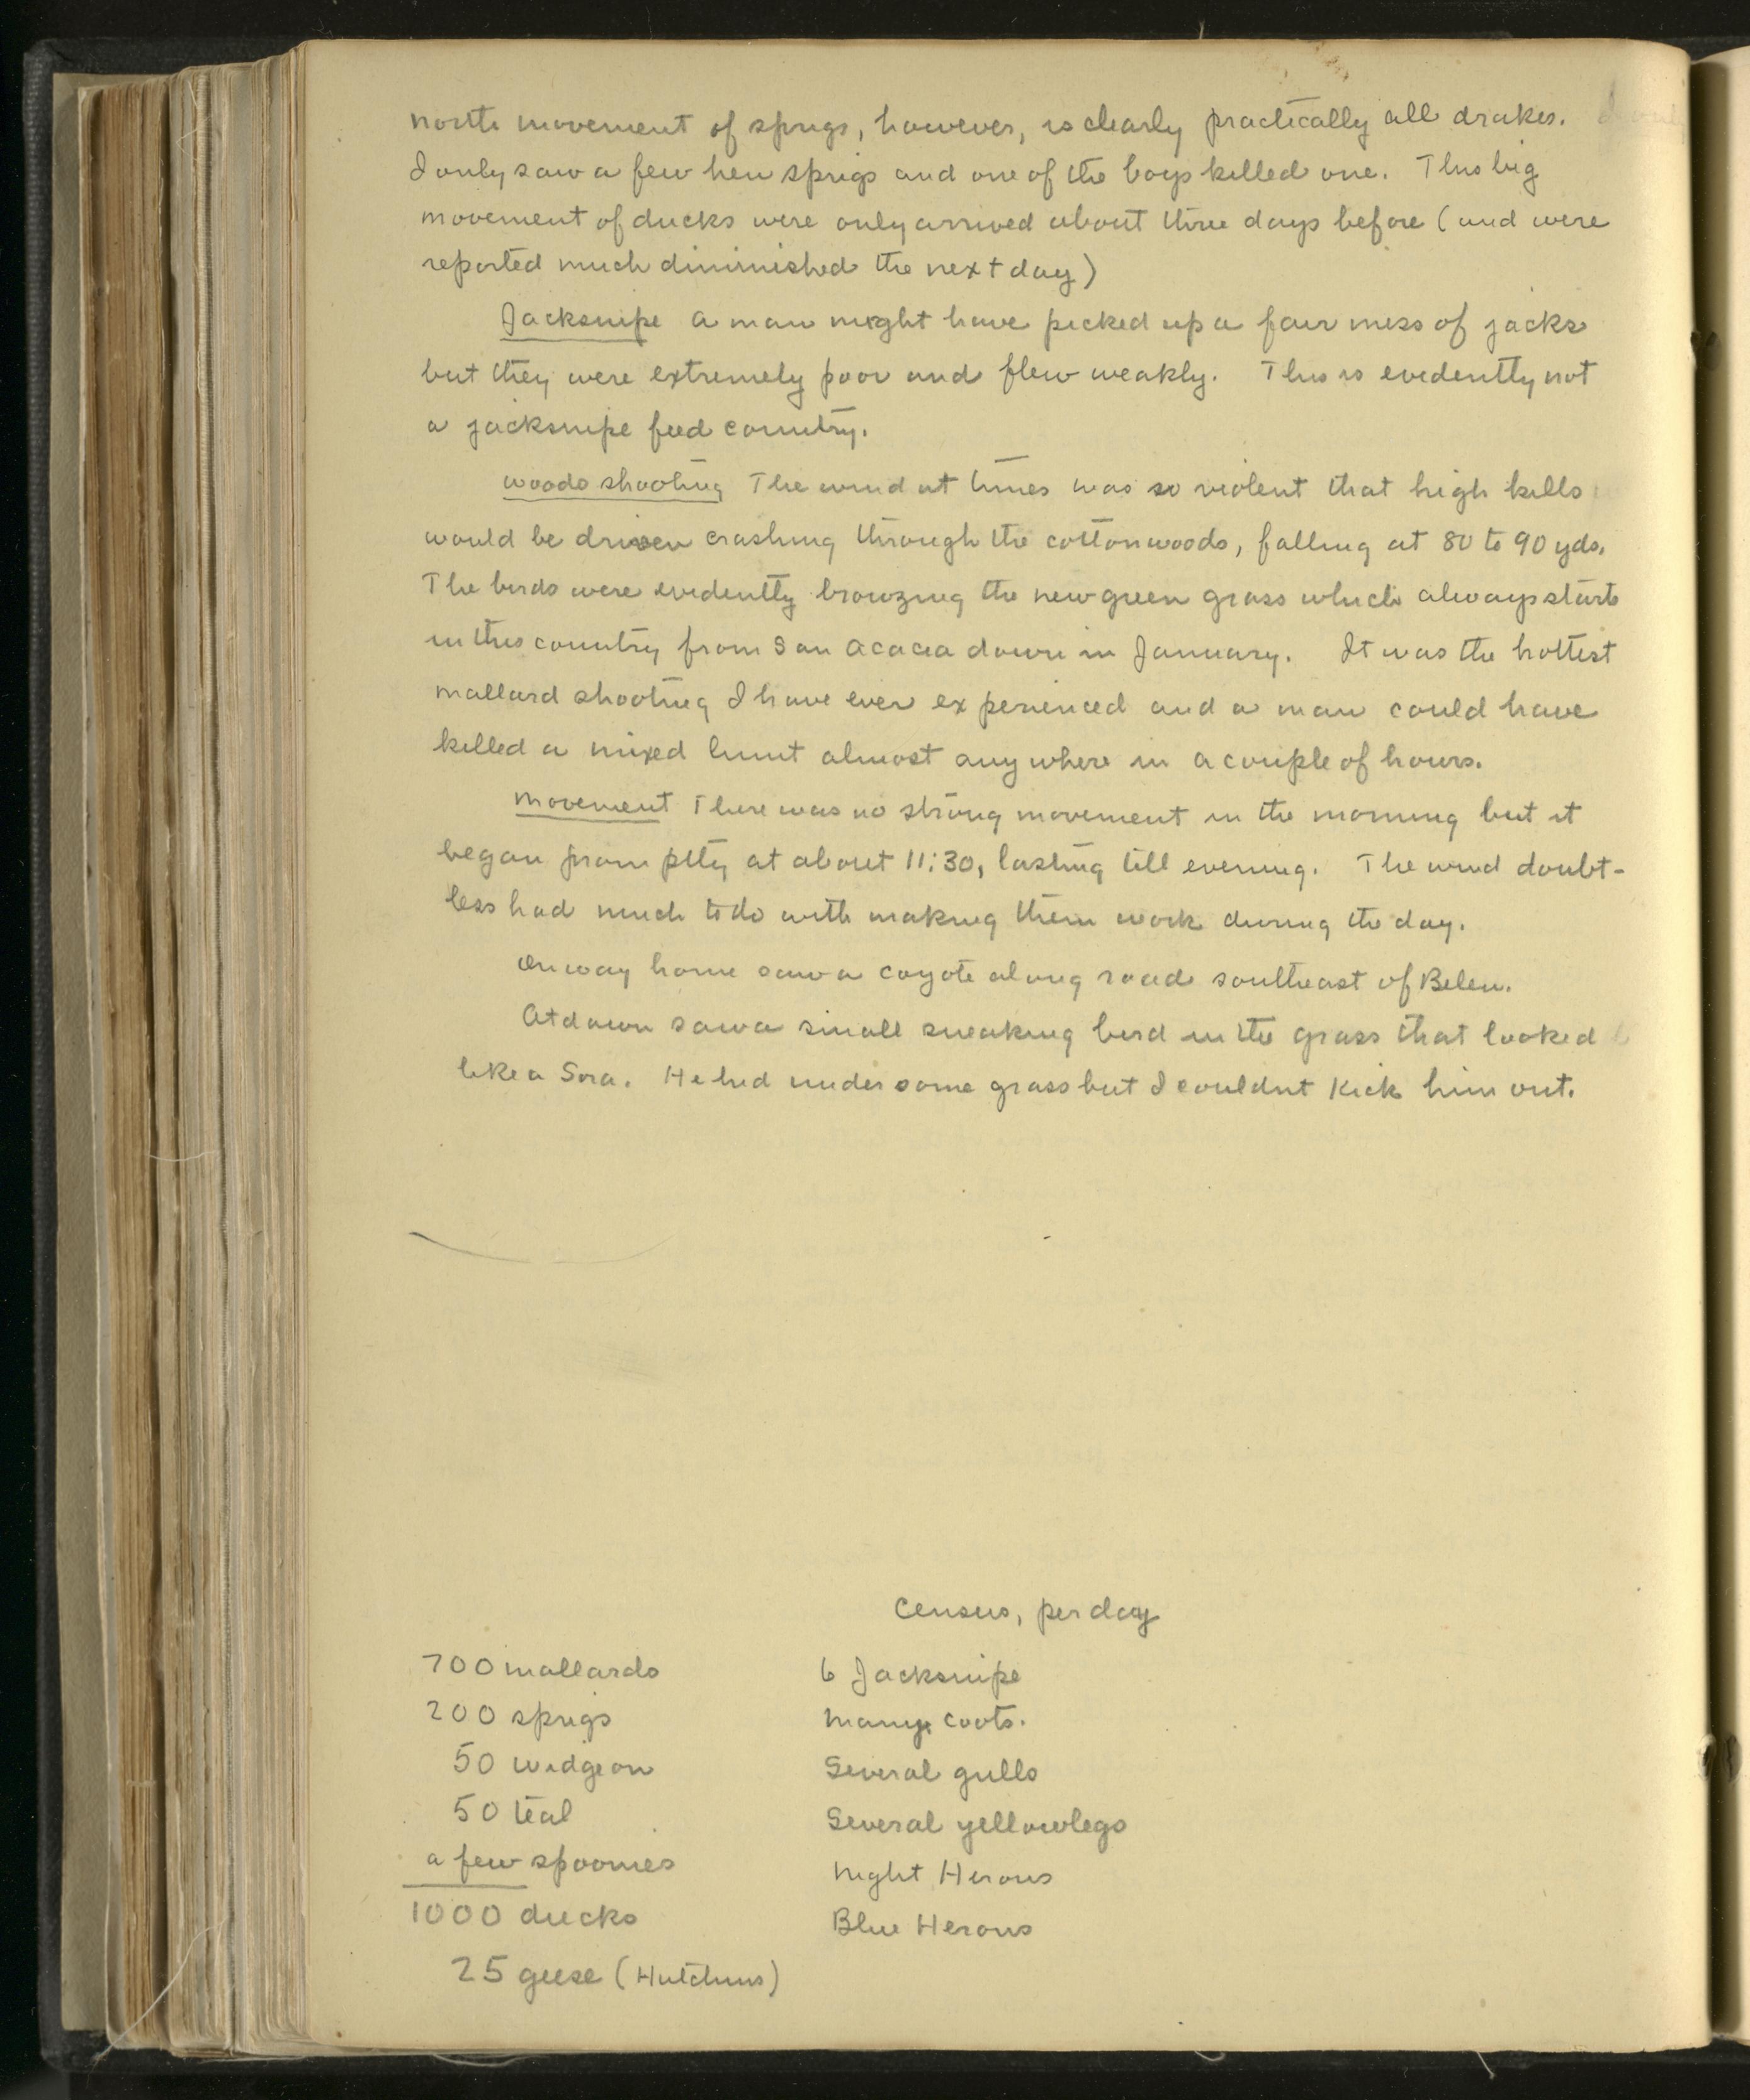 north movement of sprigs, however, is clearly practically all drakes.
I only saw a few hen sprigs and one of the boys killed one. This big
movement of ducks were only arrived about three days before (and were
reported much diminished the next day)
Jacksnipe A man might have picked up a fair mess of jacks
but they were extremely poor and flew weakly. This is evidently not
a jacksnipe feed country.
Woods shooting The wind at times was so violent that high kills
would be driven crashing through the cottonwoods, falling at 80 to 90 yds.
The birds were evidently browzing the new green grass which always starts
in this country from San Acacia down in January. It was the hottest
mallard shooting I have ever experienced and a man could have
killed a mixed limit almost anywhere in a couple of hours.
Movement There was no strong movement in the morning but it
began promptly at about 11:30, lasting till evening. The wind doubt-
less had much to do with making them work during the day.
On way home saw a coyote along road southeast of Belen.
At dawn saw a small sneaking bird in the grass that looked
like a Sora. He hid under some grass but I couldnt kick him out.
Census, per day
700 mallards
200 sprigs
50 widgeon
50 teal
a few spoonies
1000 ducks
25 geese (Hutchins)
6 Jacksnipe
Many coots.
Several gulls
Several yellowlegs
Night Herons
Blue Herons